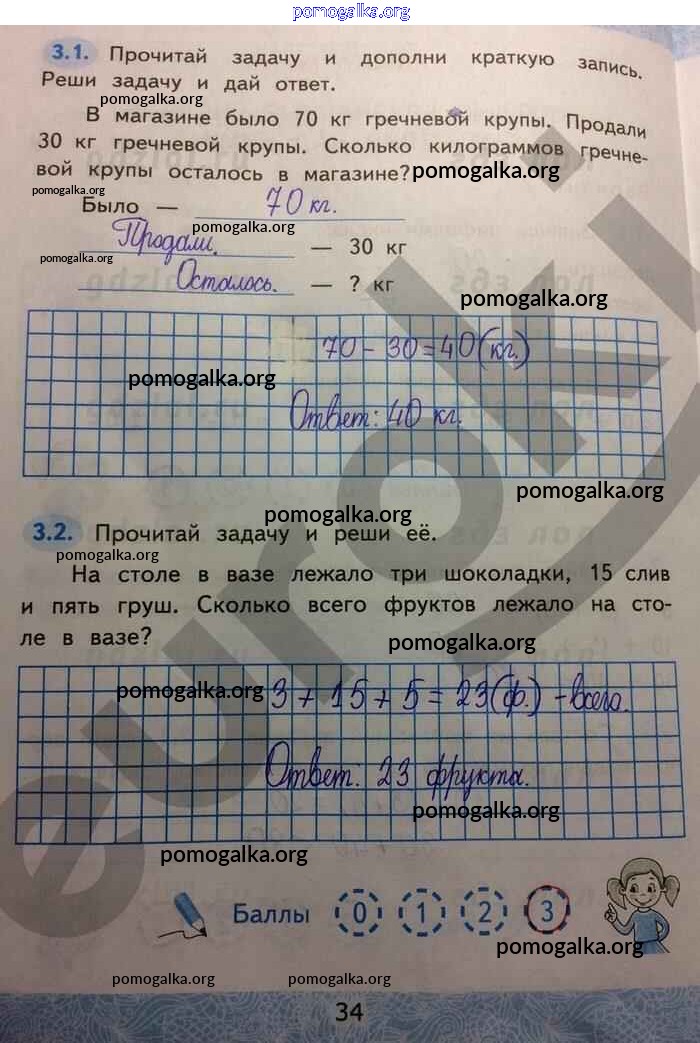 pomogalka.org
3.1. Прочитай задачу и дополни краткую запись.
Реши задачу и дай ответ.
pomogalka.org
В магазине было 70 кг гречневой крупы. Продали
30 кг гречневой крупы. Сколько килограммов гречне-
вой крупы осталось в магазине?
pomogalka.org
pomogalka.org
Было — 70 кг.
pomogalka.org
Продали. — 30 кг
pomogalka.org
Осталось. — ? кг
pomogalka.org
70 - 30 = 40 (кг.)
pomogalka.org
Ответ: 40 кг.
pomogalka.org
pomogalka.org
3.2. Прочитай задачу и реши её.
pomogalka.org
На столе в вазе лежало три шоколадки, 15 слив
и пять груш. Сколько всего фруктов лежало на сто-
ле в вазе?
pomogalka.org
pomogalka.org
3 + 15 + 5 = 23 (ф.) - всего.
Ответ: 23 фрукта.
pomogalka.org
pomogalka.org
Баллы 0 1 2 3
pomogalka.org
pomogalka.org
pomogalka.org
34
euroki